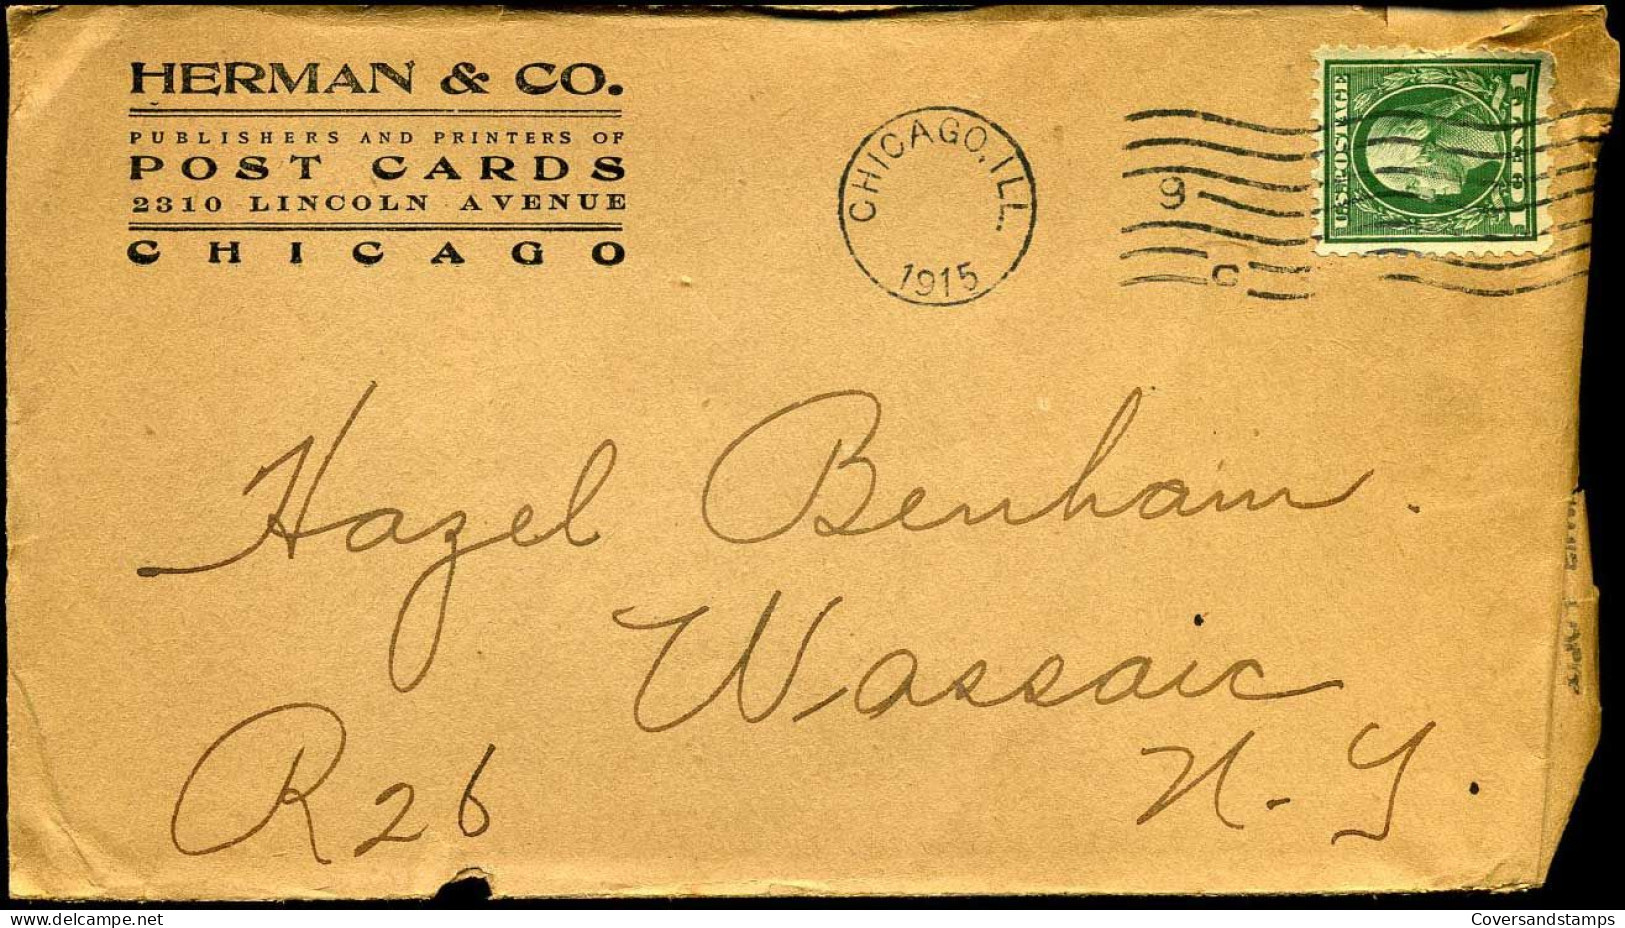 HERMAN & CO.
PUBLISHERS AND PRINTERS OF
POST CARDS
2310 LINCOLN AVENUE
CHICAGO
CHICAGO, ILL.
1915
9
C
U.S. POSTAGE
1 CENT 1
Hazel Benham.
Wassaic
R 26
N. Y.
delcampe.net
Coversandstamps